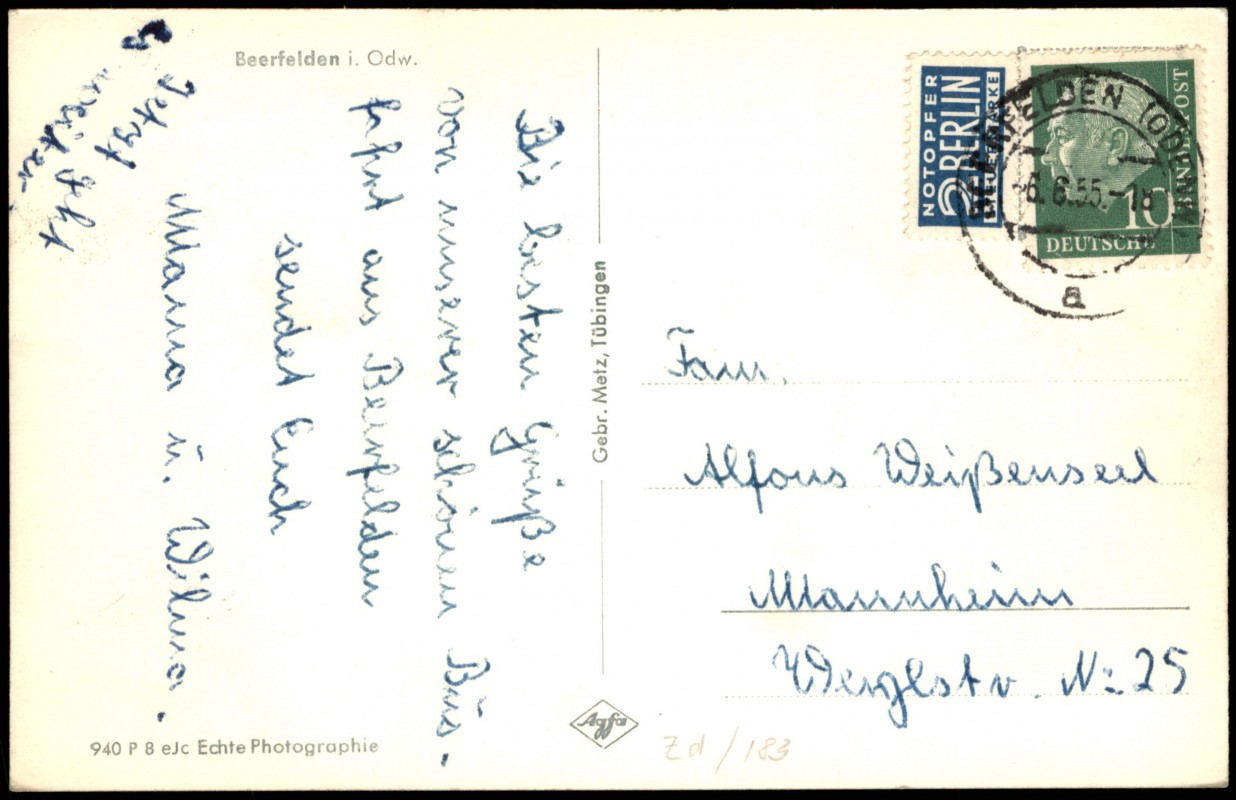 Beerfelden i. Odw.
Die besten Grüße
von unserer schönen Büs.
fahrt aus Beerfelden
sendet Euch
Mama u. Wilma.
Jetzt geht
es weiter
Gebr. Metz, Tübingen
940 P 8 eJc Echte Photographie
Agfa
NOTOPFER
2 BERLIN
STEUERMARKE
DEUTSCHE
BUNDESPOST
10
BEERFELDEN (ODENW)
-6.6.55.-18
a
Fam.
Alfons Weißenseel
Mannheim
№ 25
Zd / 183